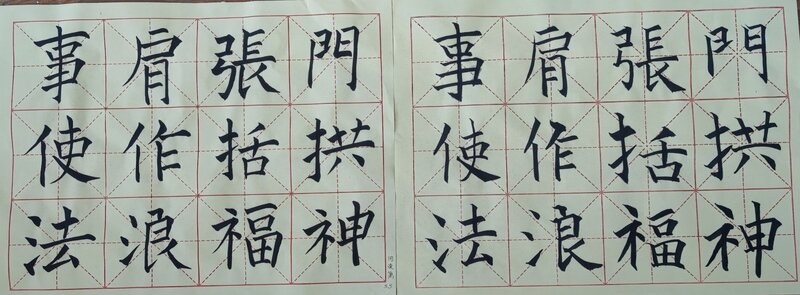 事肩張門
使作括拱
法浪福神
事肩張門
使作括拱
法浪福神